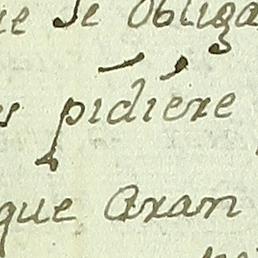 se obliga
pidiere
que Aran